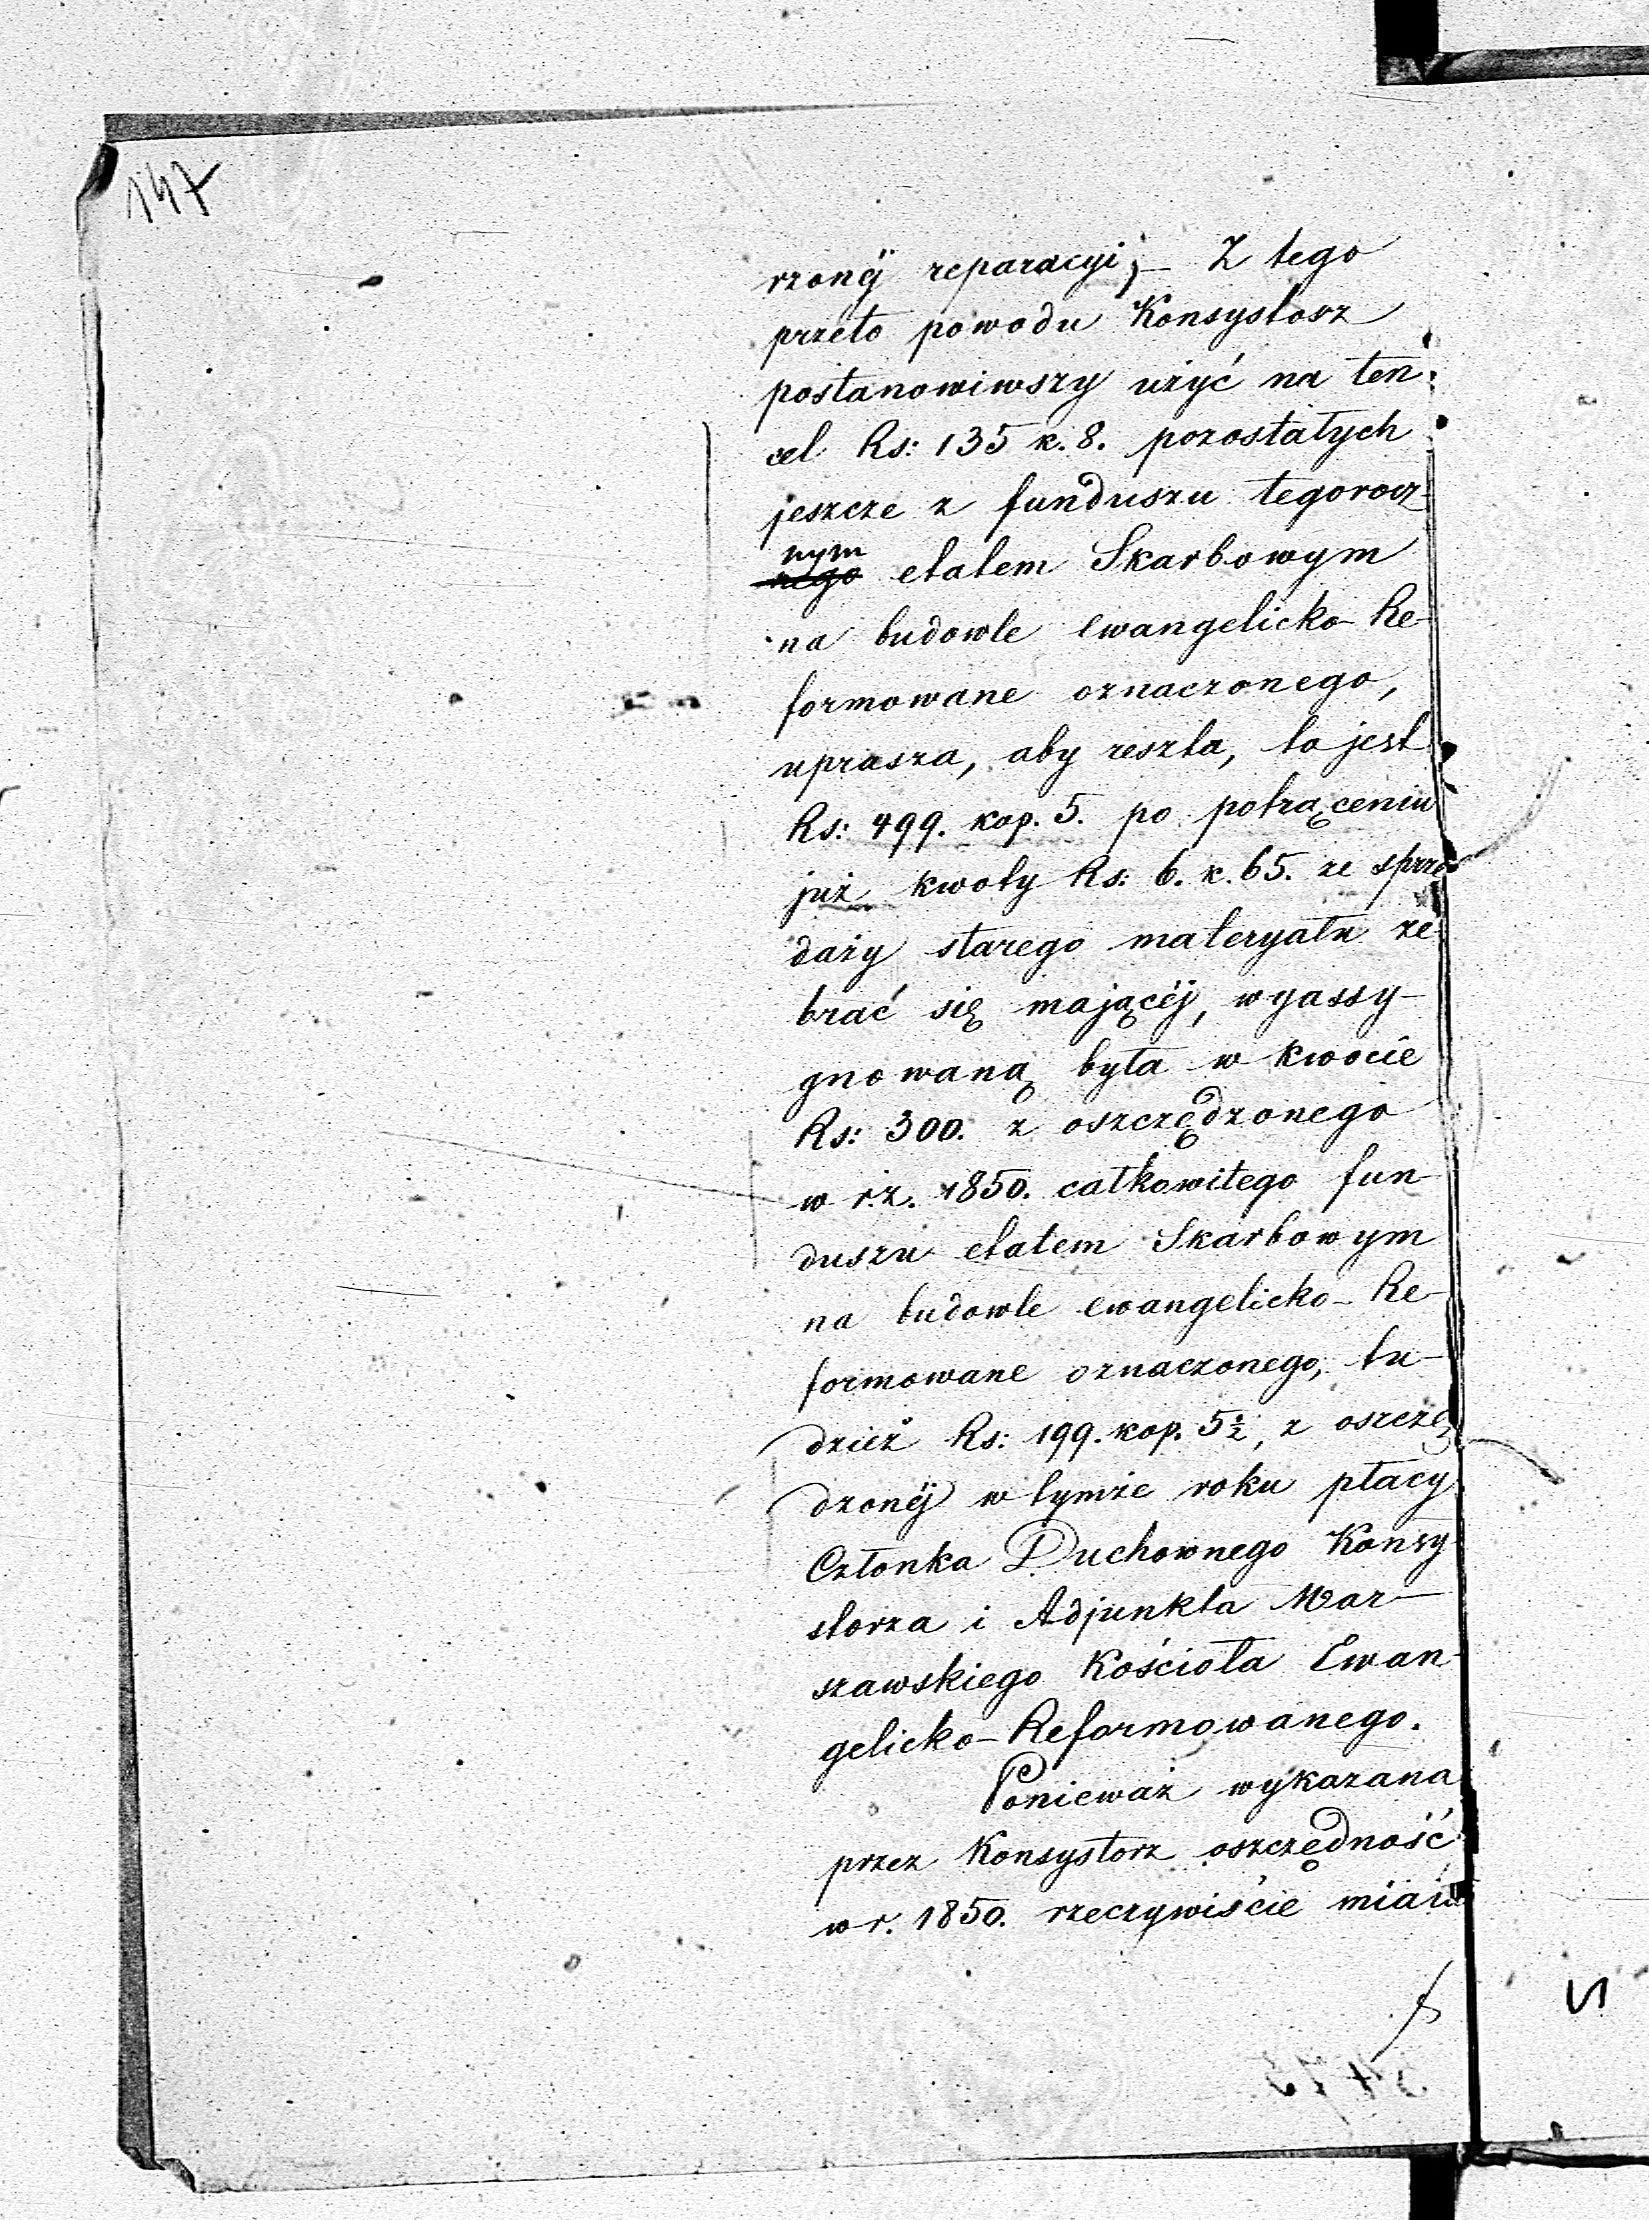 147
rzonéj reparacyi; – Z tego
przeto powodu Konsystorz
postanowiwszy użyć na ten
cel Rs: 135 k. 8. pozostałych
jeszcze z funduszu tegorocz-
nym
nego etatem Skarbowym
na budowle Ewangelicko-Re-
formowane oznaczonego,
uprasza, aby reszta, to jest
Rs: 499. kop. 5. po potrąceniu
już kwoty Rs: 6. k. 65. ze sprze
daży starego materyału ze
brać się mającéj, wyassy-
gnowaną była w kwocie
Rs: 300. z oszczędzonego
w r.z. 1850. całkowitego fun-
duszu etatem Skarbowym
na budowle Ewangelicko-Re-
formowane oznaczonego, tu-
dzież Rs: 199. kop. 5½, z oszczę
dzonéj w tymże roku płacy
Członka Duchownego Konsy-
storza i Adjunkta War-
szawskiego Kościoła Ewan-
gelicko-Reformowanego.
Ponieważ wykazana
przez Konsystorz oszczędność
w r. 1850. rzeczywiście miała